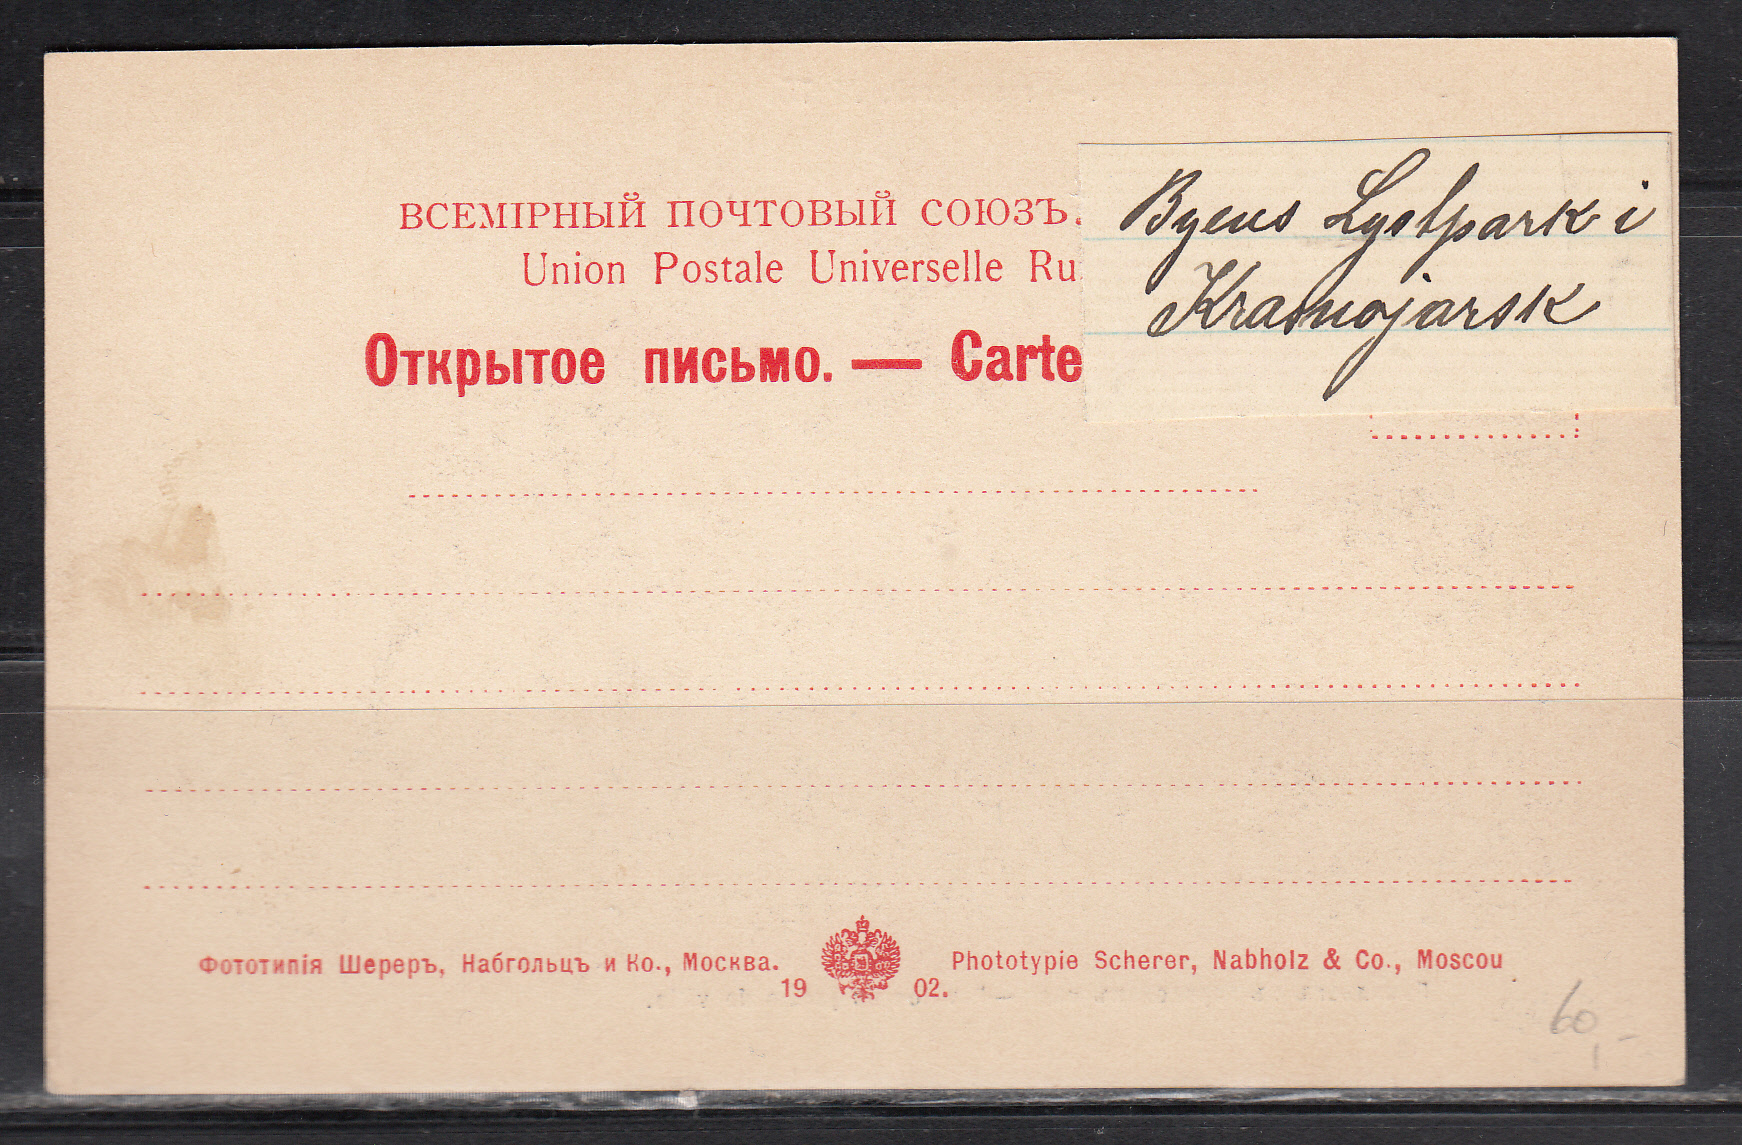 ВСЕМІРНЫЙ ПОЧТОВЫЙ СОЮЗЪ.
Union Postale Universelle Ru
Открытое письмо. — Carte
Byens Lystpark i
Krasnojarsk
Фототипія Шереръ, Набгольцъ и Ко., Москва.
1902.
Phototypie Scherer, Nabholz & Co., Moscou
60,-